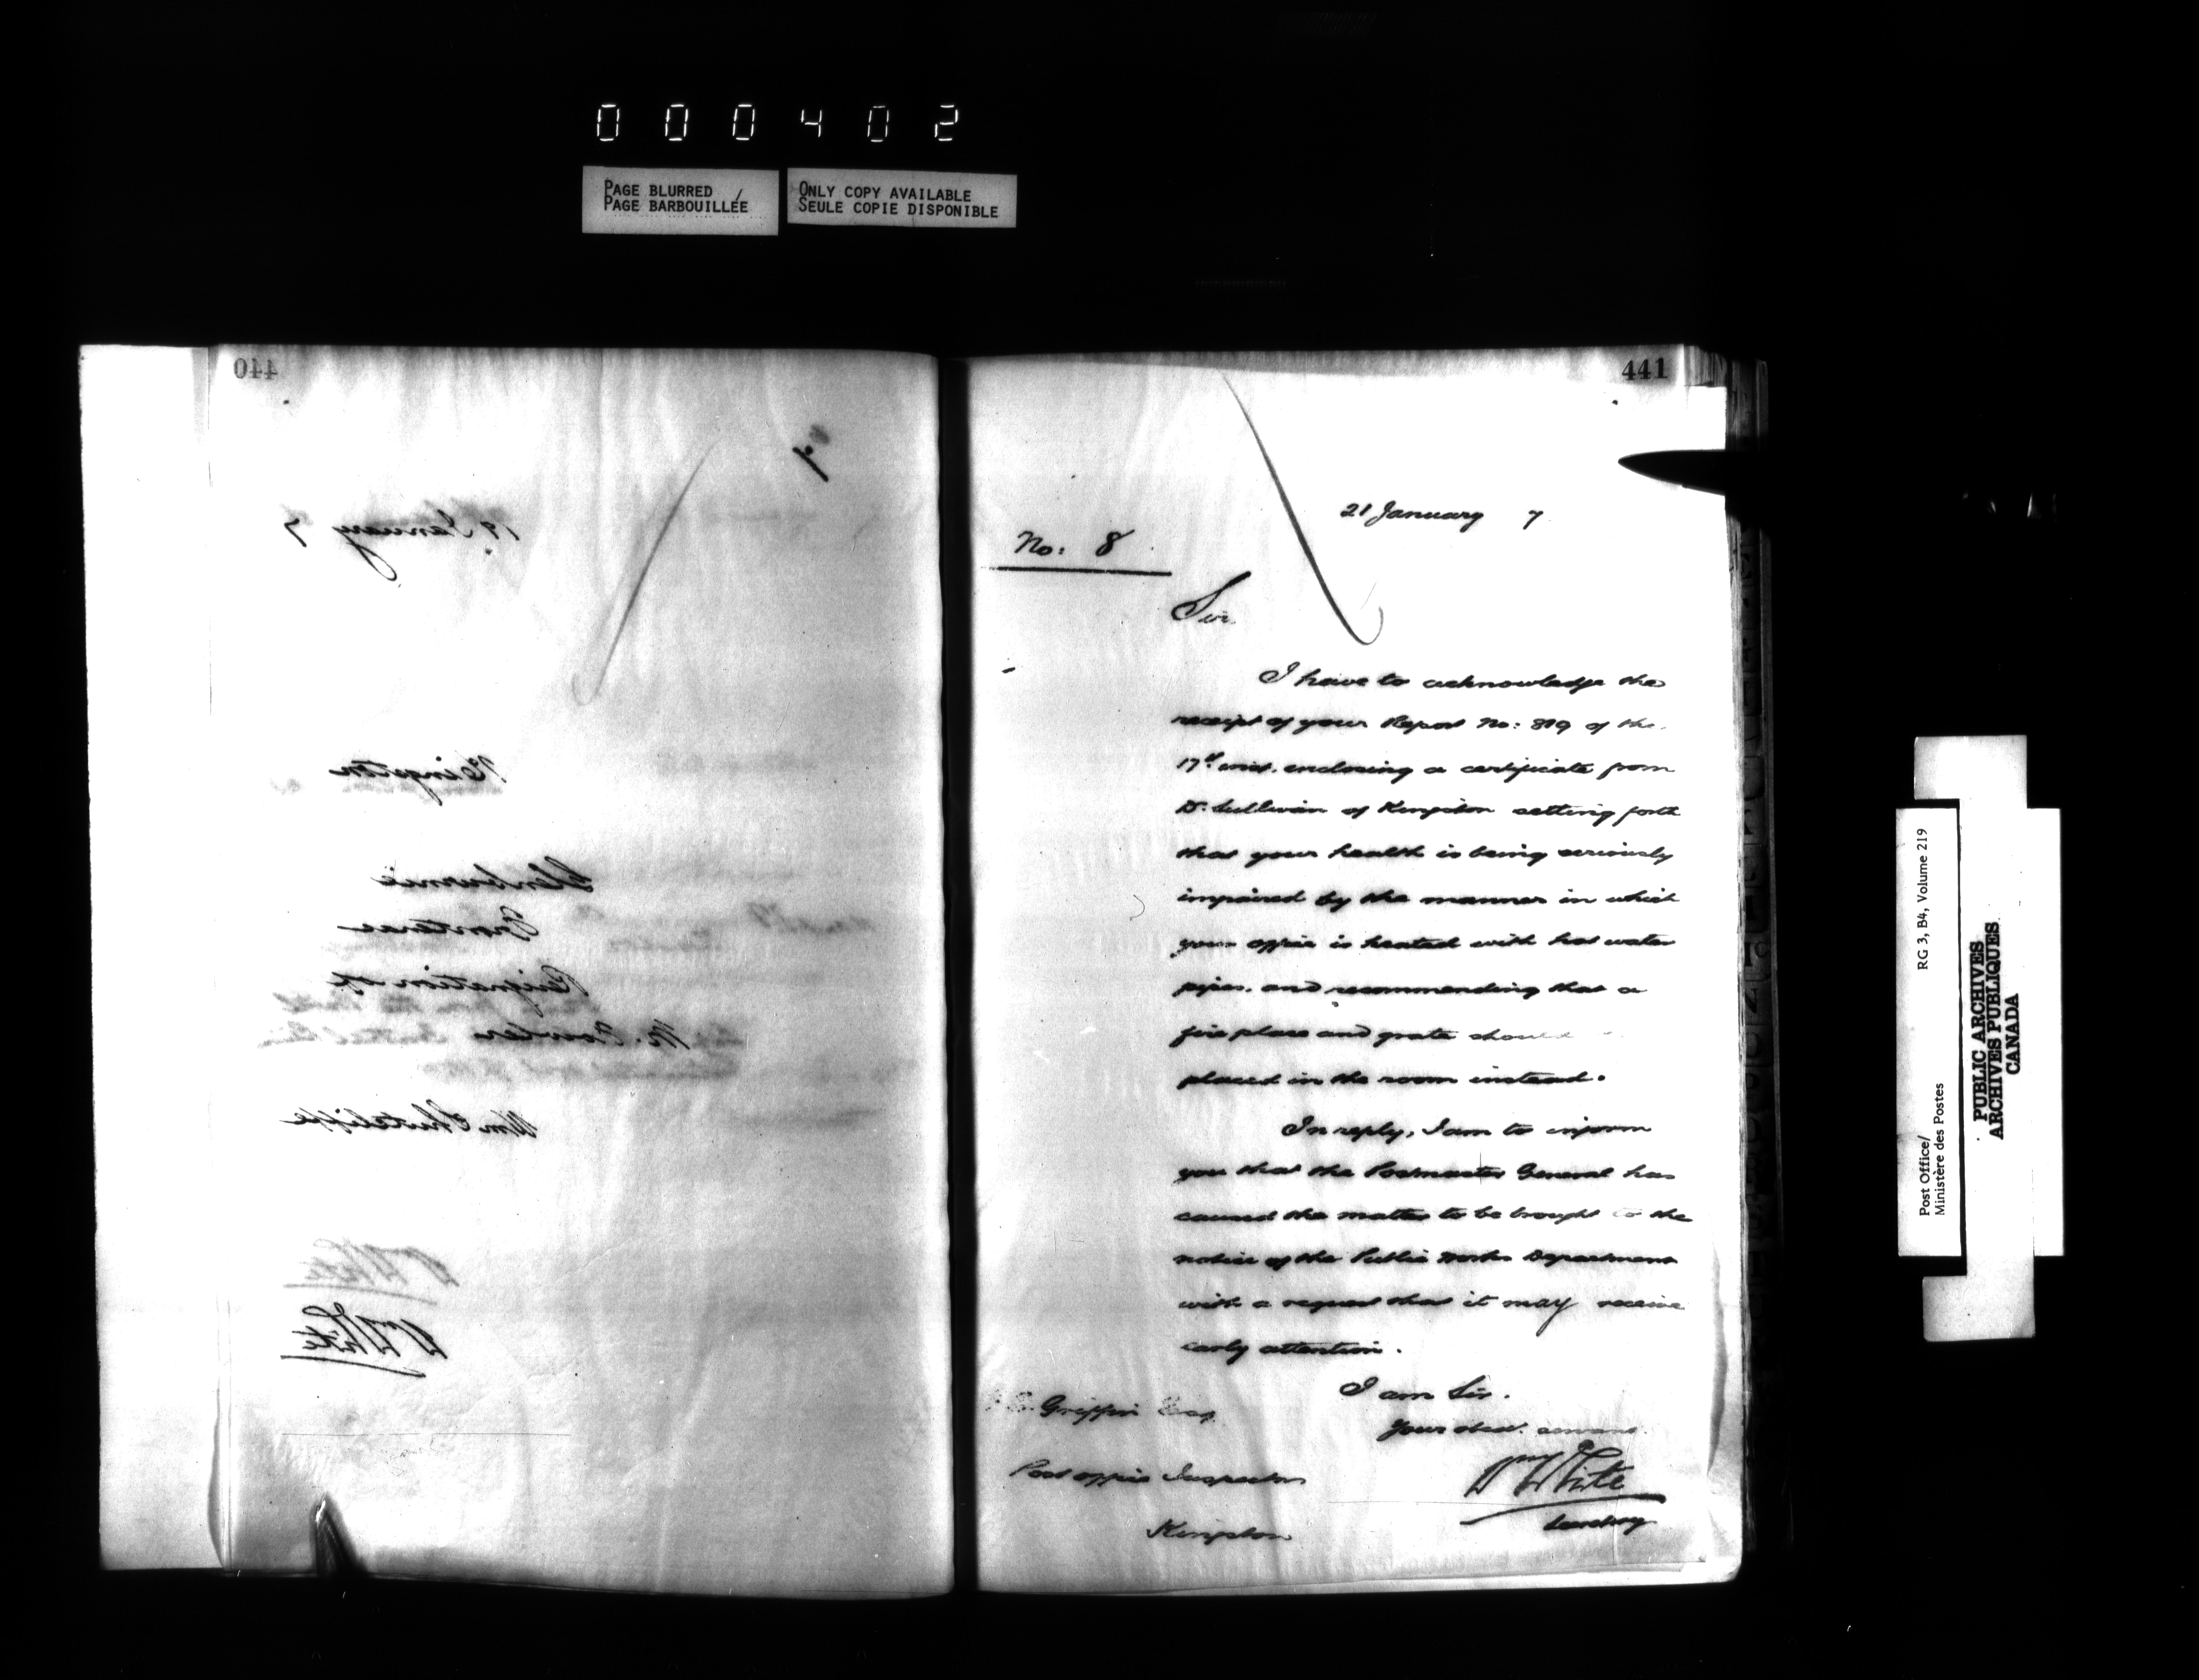 000402
PAGE BLURRED
PAGE BARBOUILLÉE
ONLY COPY AVAILABLE
SEULE COPIE DISPONIBLE
440
19 January 7
Kingston
Glenburnie
Frontenac
Resignation of
M. Fowler
Wm Shutcliffe
Wm White
Wm White
441
21 January 7
No: 8
Sir
I have to acknowledge the
receipt of your Report No: 819 of the
17th inst. enclosing a certificate from
Dr. Sullivan of Kingston setting forth
that your health is being seriously
impaired by the manner in which
your office is heated with hot water
pipes, and recommending that a
fire place and grate should
placed in the room instead.
In reply, I am to inform
you that the Postmaster General has
caused the matter to be brought to the
notice of the Public Works Department
with a request that it may receive
early attention.
I am Sir.
Your obed. servant.
Wm White
Secretary
Griffin Esq
Post office Inspector
Kingston
Post Office/
Ministère des Postes
RG 3, B4, Volume 219
PUBLIC ARCHIVES
ARCHIVES PUBLIQUES
CANADA